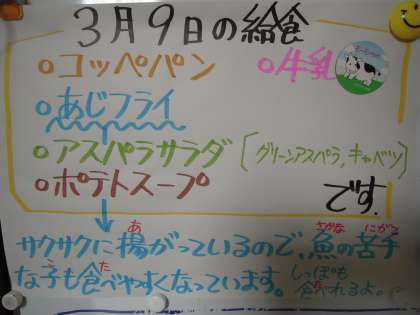 3月9日の給食
○コッペパン ○牛乳
○あじフライ
○アスパラサラダ [グリーンアスパラ,キャベツ]
○ポテトスープ
です。
サクサクに揚がっているので、魚の苦手
あ さかな にがて
な子も食べやすくなっています。しっぽも
こ た 食べれるよ。